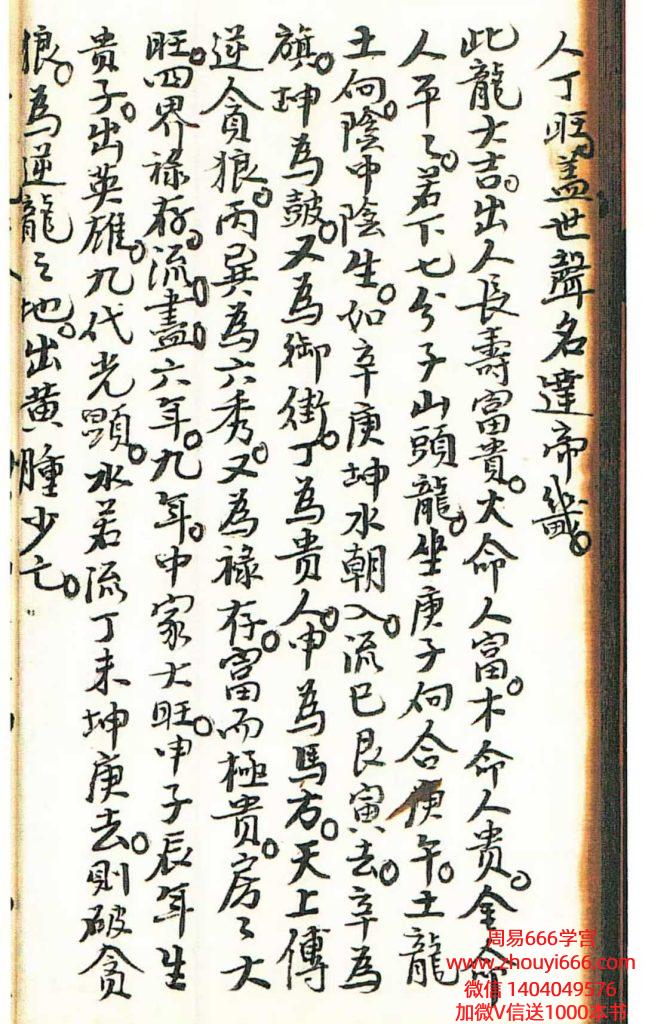 人丁旺。盖世聲名達帝畿。
此龍大吉。出人長壽富貴。火命人富。木命人贵。金命
人平〻。若下七分子山頭龍。坐庚子向合庚午。土龍
土向。陰中陰生。如辛庚坤水朝入。流巳艮寅去。辛為
旗。坤為皷。又為御街。丁為贵人。申為馬方。天上傅
逆貪狼。丙巽為六秀。又為祿存。富而極贵。房〻大
旺。四界祿存。流盡六年。九年。中家大旺。申子辰年生
贵子。出英雄。九代光顕。水若流丁未坤庚去。則破貪
狼。為逆龍之地。出黄腫少亡。
周易666学宫
www.zhouyi666.com
微信 1404049576
加微V信送1000本书